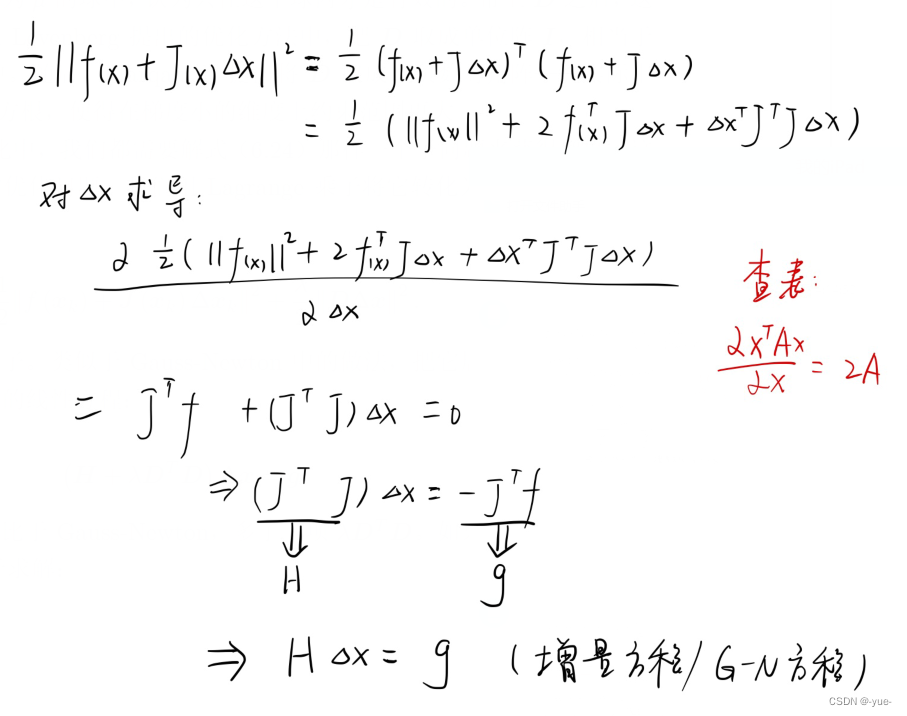 ½||f(x)+J(x)Δx||² = ½ (f(x)+JΔx)ᵀ (f(x)+JΔx)
= ½ (||f(x)||² + 2f(x)ᵀJΔx + ΔxᵀJᵀJΔx)
对Δx求导:
∂ ½(||f(x)||² + 2f(x)ᵀJΔx + ΔxᵀJᵀJΔx)
∂Δx
查表:
∂xᵀAx/∂x = 2A
= Jᵀf + (JᵀJ)Δx = 0
⇒ (JᵀJ)Δx = -Jᵀf
⇓ ⇓
H g
⇒ HΔx = g (增量方程/G-N方程)
CSDN @-yue-